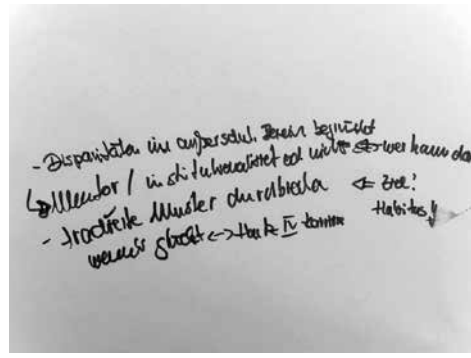 - Disparitäten im außerschul. Bereich begründet
↳ Mentor / institutionalisiert od nicht ⇔ wer kann da
- tradierte Muster durchbrechen ⇐ Ziel!
Habitus!!
↔ Hartz IV